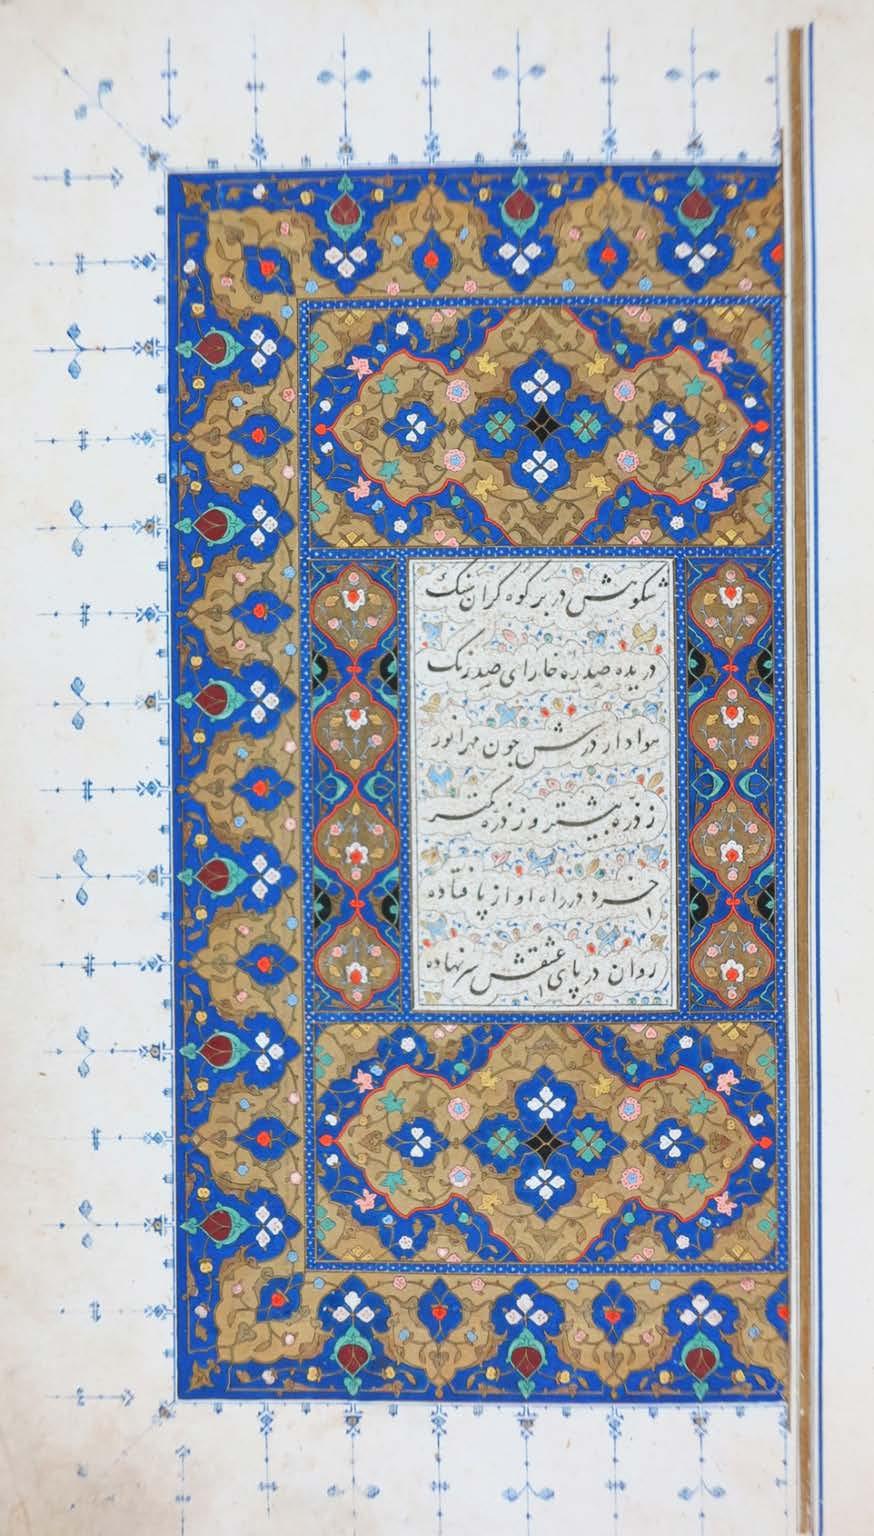 شکوهش در بر کوه کران سنک
دریده صدره خارای صد رنک
هوادار درش جون مهر انور
ز ذره بیشتر و ز ذره کمتر
خرد در راه او از پا فتاده
روان در پای عشقش سر نهاده